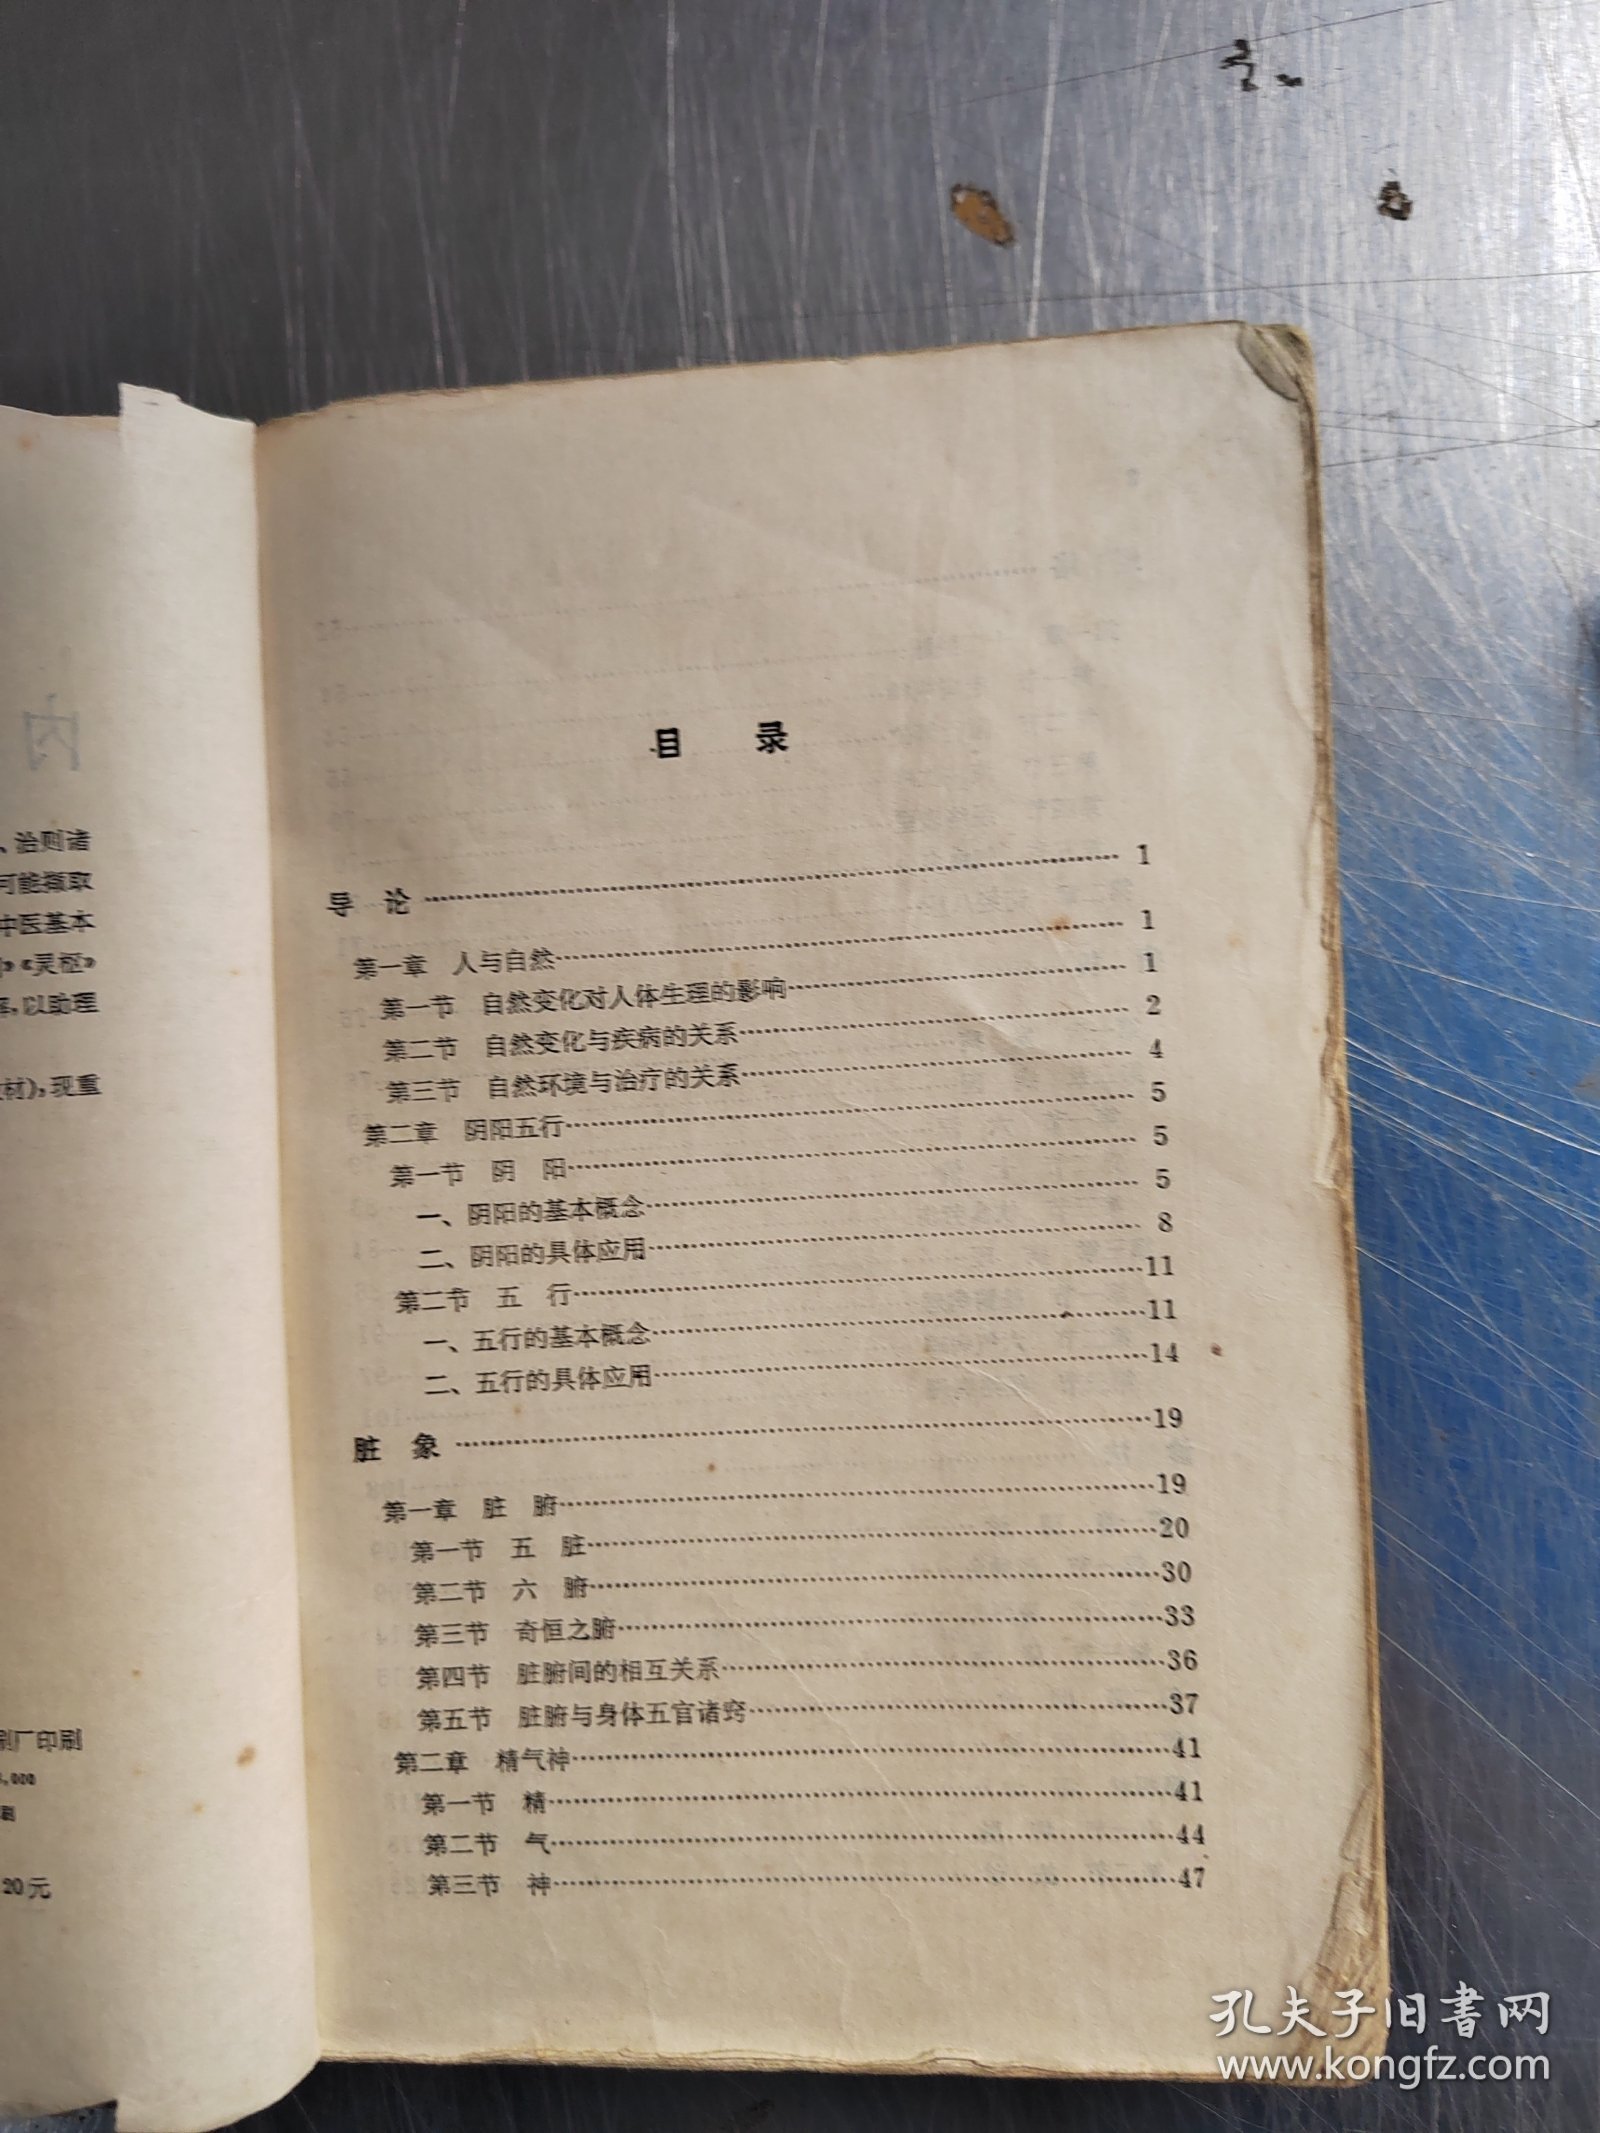 内
、治则诸
可能撷取
中医基本
》《灵枢》
以助理
材),现重
刷厂印刷
,000
刷
20元
目 录
导 论……1
第一章 人与自然……1
第一节 自然变化对人体生理的影响……1
第二节 自然变化与疾病的关系……2
第三节 自然环境与治疗的关系……4
第二章 阴阳五行……5
第一节 阴 阳……5
一、阴阳的基本概念……5
二、阴阳的具体应用……8
第二节 五 行……11
一、五行的基本概念……11
二、五行的具体应用……14
脏 象……19
第一章 脏 腑……19
第一节 五 脏……20
第二节 六 腑……30
第三节 奇恒之腑……33
第四节 脏腑间的相互关系……36
第五节 脏腑与身体五官诸窍……37
第二章 精气神……41
第一节 精……41
第二节 气……44
第三节 神……47
孔夫子旧書网
www.kongfz.com